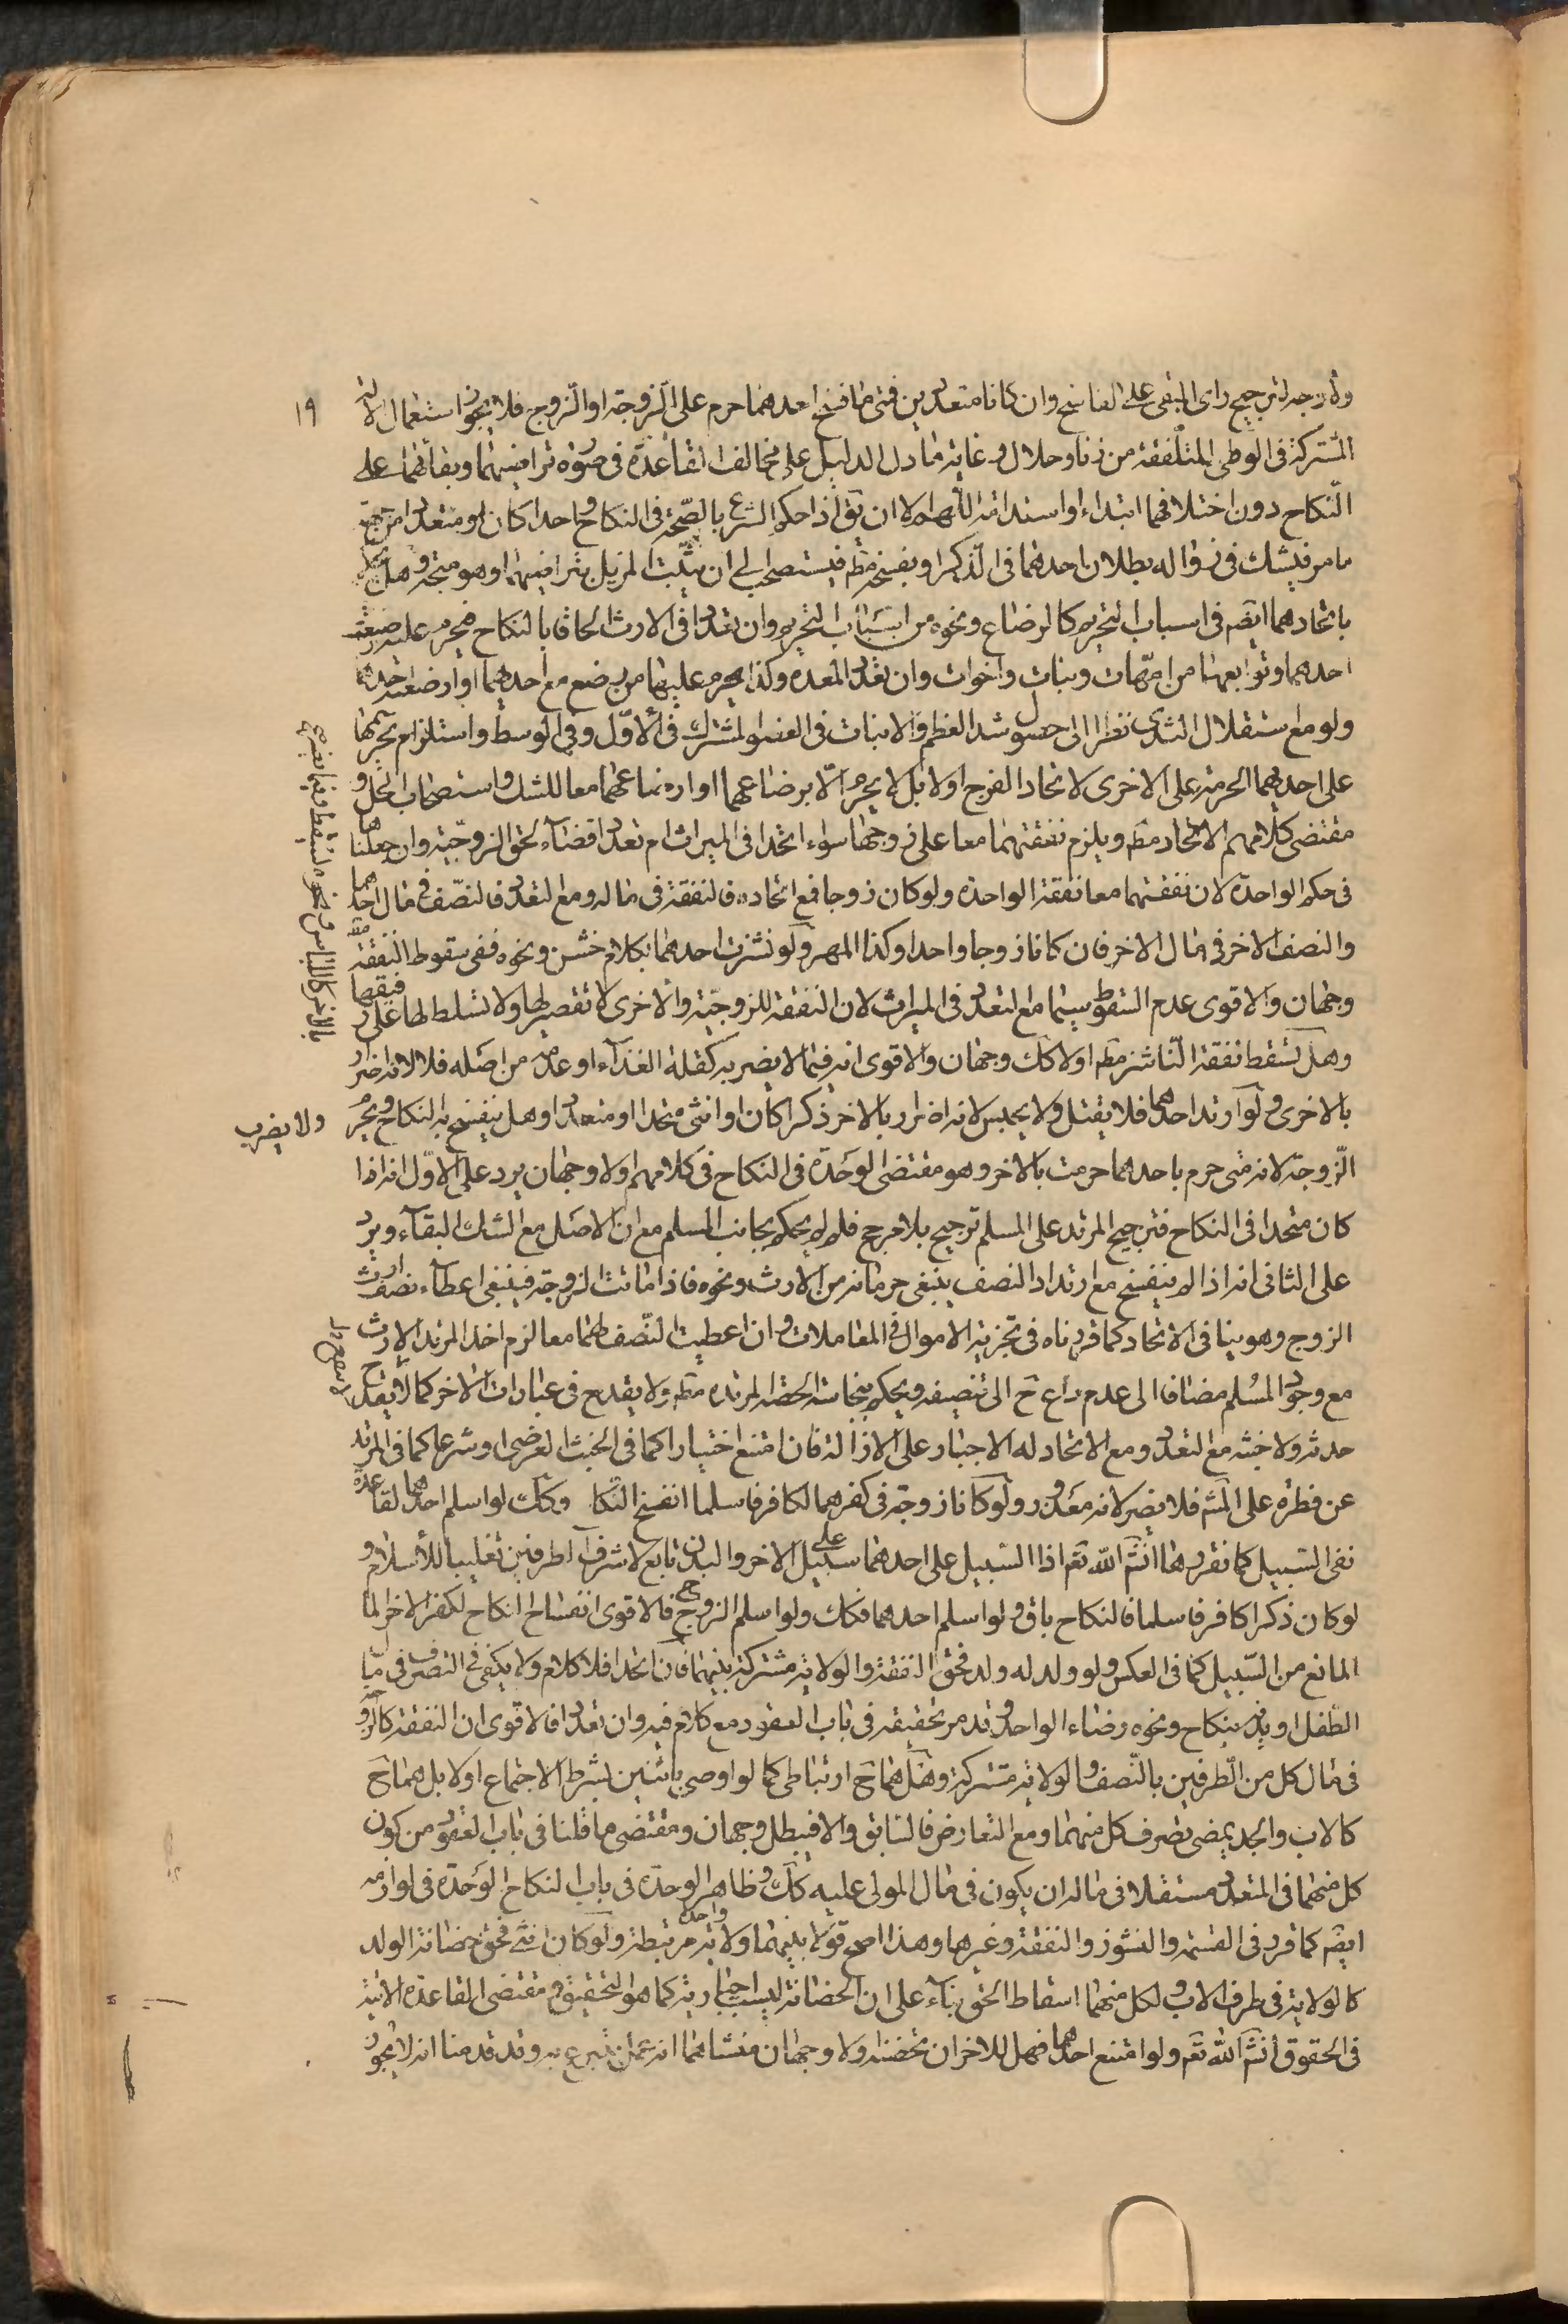 ١٩
ولا وجه لترجيح راى المبقى على الفاسخ وان كانا متعددين فمتى ما فسخ احدهما حرم على الزوجة او الزوج فلا يجوز استعمال الالة
المشتركة فى الوطى المتلفقة من زنا وحلال وغاية ما دل الدليل على مخالف القاعدة فى صورة تراضيهما وبقائهما على
النكاح دون اختلافهما ابتداء او استدامة اللهم الا ان يق اذا حكم الشرع بالصحة فى النكاح واحدا كان او متعددا من جهة
ما مر فيشك فى زواله بطلان احدهما فى الذكر او بفسخه مط فيستصحب الى ان يثبت المزيل بتراضيهما وهو متجه وهل
باتحادهما ايضه فى اسباب التحريم كالرضاع ونحوه من اسباب التحريم وان تعددا فى الارث الحاقا بالنكاح فيحرم عليه
احدهما وتوابعهما من امهات وبنات واخوات وان تعدد المعدة وكذا يحرم عليهما من رضع مع احدهما او ارضعته احدهما
ولو مع استقلال الثدى نظرا الى حصول شد العظم والانبات فى العضو المشترك فى الاول وفى الوسط واستلزام تحريمها
على احدهما الحرمة على الاخرى لاتحاد الفرج اولا بل لا يحرم الا برضاعهما او ارضاعهما معا للشك واستصحاب الحل و
مقتضى كلامهم الاتحاد مط ويلزم نفقتهما معا على زوجها سواء اتحدا فى الميراث ام تعددا قضاء لحق الزوجية وان جعلناهما
فى حكم الواحدة لان نفقتهما معا نفقة الواحدة ولو كان زوجا فمع اتحاده فالنفقة فى ماله ومع التعدد فالنصف فى مال احدهما
والنصف الاخر فى مال الاخر فان كانا زوجا واحدا وكذا المهر ولو نشزت احدهما بكلام خشن ونحوه ففى سقوط النفقة مط
وجهان والاقوى عدم السقوط سيما مع التعدد فى الميراث لان النفقة للزوجية والاخرى لا تقصير لها ولا تسلط لها على
وهل تسقط نفقة الناشز مط اولا كك وجهان والاقوى انه فيما لا يضر به كقلة الغذاء او عدمه من اصله فلا لانه اضرار
بالاخرى ولو ارتد احدهما فلا يقتل ولا يحبس لانه اضرار بالاخر ذكرا كان او انثى متحدا او متعددا وهل ينفسخ به النكاح ويحرم
ولا يضرب
الزوجة لانه متى حرم باحدهما حرمت بالاخر وهو مقتضى الوحدة فى النكاح فى كلامهم اولا وجهان يرد على الاول انه اذا
كان متحدا فى النكاح فترجيح المرتد على المسلم ترجيح بلا مرجح فلم لم يحكم بجانب المسلم مع ان الاصل مع الشك البقاء ويرد
على الثانى انه اذا لم ينفسخ مع ارتداد النصف ينبغى حرمانه من الارث ونحوه فاذا ماتت الزوجة فينبغى اعطاء نصف ارث
الزوج وهو ينافى الاتحاد كما قررناه فى تجزية الاموال فى المقاملات وان اعطيت النصف لهما معا لزم اخذ المرتد الارث
مع وجود المسلم مضافا الى عدم داع ح الى تنصيفه ويحكم بنجاسة الحصة المرتدة مط ولا يقدح فى عبادات الاخر كما لا يقدح
حدثه ولا خبثه مع التعدد ومع الاتحاد له الاجبار على الازالة فان امتنع اختيارا كما فى الخبث العرضى او شرعا كما فى المرتد
عن فطرة على المش فلا يضر لانه معذور ولو كانا زوجة فى كفرهما لكافر فاسلما انفسخ النكا وكك لو اسلم احدهما لقاعدة
نفى السبيل كما نقررها انش الله تع اذا السبيل على احدهما سبيل على الاخر والبدن تابع لاشرف الطرفين تغليبا للاسلام و
لو كان ذكرا كافر فاسلما فالنكاح باق ولو اسلم احدهما فكك ولو اسلم الزوج ح فالاقوى انفساخ النكاح لكفر الاخر لما
المانع من السبيل كما فى العكس ولو ولد له ولد فحق النفقة والولاية مشتركة بينهما فان اتحدا فلا كلام ولا يكفى ح التصرف فى مال
الطفل او بدنه بنكاح ونحوه رضاء الواحد وقد مر تحقيقه فى باب العقود مع كلام فيه وان تعددا فالاقوى ان النفقة كالزوجة
فى مال كل من الطرفين بالنصف والولاية مشتركة وهل هما ح ارتباطى كما لو اوصى باثنين بشرط الاجتماع اولا بل هما ح
كالاب والجد يمضى تصرف كل منهما ومع التعارض فالسابق والا فيبطل وجهان ومقتضى ما قلنا فى باب العقود من كون
كل منهما فى المتعدد مستقلا فى ماله ان يكون فى مال المولى عليه كك وظاهر الوحدة فى باب النكاح الوحدة فى لوازمه
ايضه كما قرر فى القسمة والنشوز والنفقة وغيرها وهذا اصح قولا بينهما ولاية واحدة مرتبطة ولو كان انثى فحق حضانة الولد
كالولاية فى طرف الاب ولكل منهما اسقاط الحق بناء على ان الحضانة ليست اجبارية كما هو التحقيق ومقتضى القاعدة الاتية
فى الحقوق انش الله تع ولو امتنع احدهما فهل للاخر ان يحضنه اولا وجهان منشاهما انه عمل تبرع به وقد قدمنا انه لا يجوز